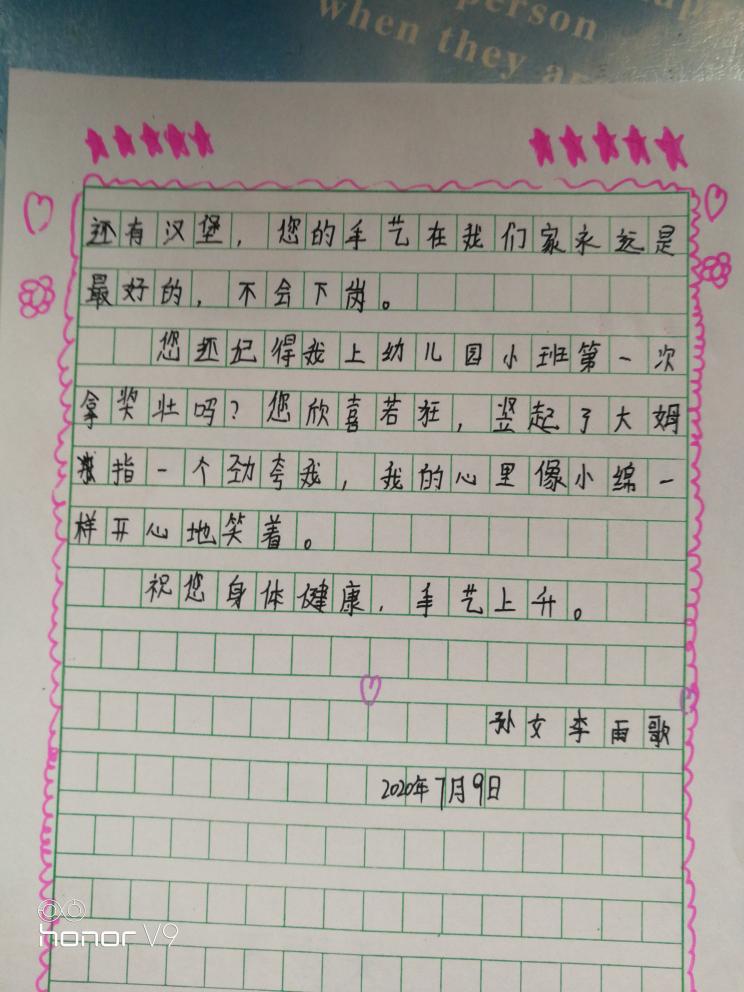 person
when they a
还有汉堡，您的手艺在我们家永远是
最好的，不会下岗。
您还记得我上幼儿园小班第一次
拿奖壮吗？您欣喜若狂，竖起了大姆
指一个劲夸我，我的心里像小绵一
样开心地笑着。
祝您身体健康，手艺上升。
孙女李雨歌
2020年7月9日
honor V9